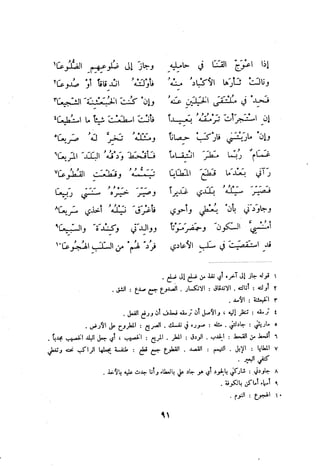 إذا اعوَجَّ القنا في حامليه وجاز إلى ضلوعهم الضلوعا١
ونالت ثأرها الأكباد منه فأولته اندقاقاً أو صدوعا٢
فحد في ملتقى الخيلين عنه وإن كنت الخبعثنة الشجيعا٣
إن استجرأت ترمقه بعيداً فأنت اسطعت شيئاً ما استطيعا٤
وإن ماريتني فاركب حصاناً ومثله تخر له صريعا٥
غمام ربما مطر انتقاماً فأقحط ودقه البلد المريعا٦
رآني بعدما قطع المطايا تيممه وقطعت القطوعا٧
فصير سيله بلدي غديراً وصير خيره سنتي ربيعا
وجاودني بأن يعطي وأحوي فأغرق نيله أخذي سريعا٨
أمنسي السكون وحضرموتا ووالدتي وكندة والسبيعا٩
قد استقصيت في سلب الأعادي فرد لهم من السلب الهجوعا١٠
١ قوله جاز إلى آخره أي نفذ من ضلع إلى ضلع .
٢ أولته : أنالته . الاندقاق : الانكسار . الصدوع جمع صدع : الشق .
٣ الخبعثنة : الأسد .
٤ ترمقه : تنظر إليه ، والأصل أن ترمقه فحذف أن ورفع الفعل .
٥ ماريتني : جادلتني . مثله : صوره في نفسك . الصريع : المطروح على الأرض .
٦ أقحط من القحط : الجدب . الودق : المطر . المريع : الخصيب ، أي جعل البلد الخصيب مجدباً .
٧ المطايا : الإبل . التيمم : القصد . القطوع جمع قطع : طنفسة يجعلها الراكب تحته وتغطي
كتفي البعير .
٨ جاودني : شاركني بالجود أي هو جاد علي بالعطاء وأنا جدت عليه بالأخذ .
٩ أسماء أماكن بالكوفة .
١٠ الهجوع : النوم .
٩١